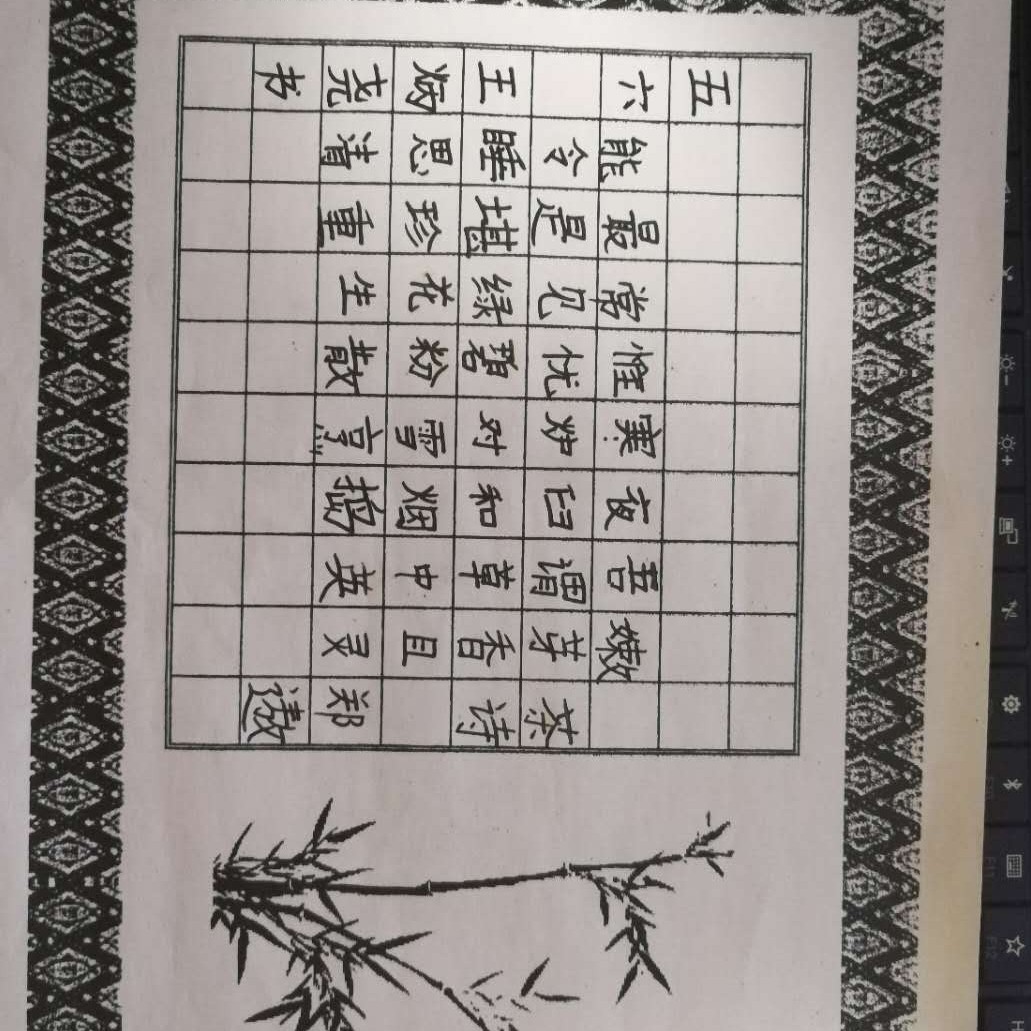 茶诗 郑遨
嫩芽香且灵
吾谓草中英
夜臼和烟捣
寒炉对雪烹
惟忧碧粉散
常见绿花生
最是堪珍重
能令睡思清
五六 王炳尧书